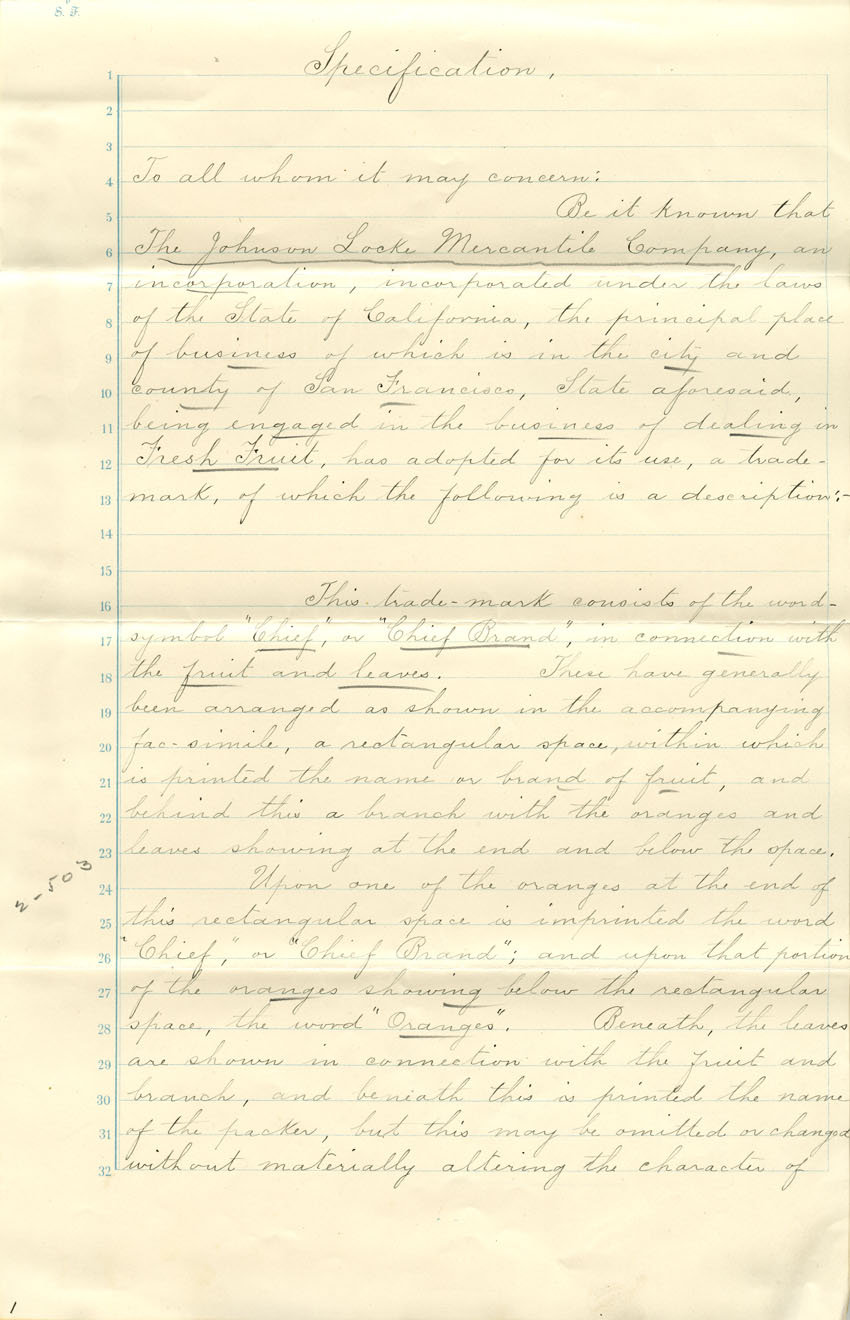 S. F.
Specification.
1
2
3
4 To all whom it may concern:
5 Be it known that
6 The Johnson Locke Mercantile Company, an
7 incorporation, incorporated under the laws
8 of the State of California, the principal place
9 of business of which is in the city and
10 county of San Francisco, State aforesaid,
11 being engaged in the business of dealing in
12 Fresh Fruit, has adopted for its use, a trade-
13 mark, of which the following is a description:-
14
15
16 This trade-mark consists of the word-
17 symbol "Chief", or "Chief Brand", in connection with
18 the fruit and leaves. These have generally
19 been arranged as shown in the accompanying
20 fac-simile, a rectangular space, within which
21 is printed the name or brand of fruit, and
22 behind this a branch with the oranges and
23 leaves showing at the end and below the space.
2-503
24 Upon one of the oranges at the end of
25 this rectangular space is imprinted the word
26 "Chief," or "Chief Brand"; and upon that portion
27 of the oranges showing below the rectangular
28 space, the word "Oranges". Beneath, the leaves
29 are shown in connection with the fruit and
30 branch, and beneath this is printed the name
31 of the packer, but this may be omitted or changed
32 without materially altering the character of
1